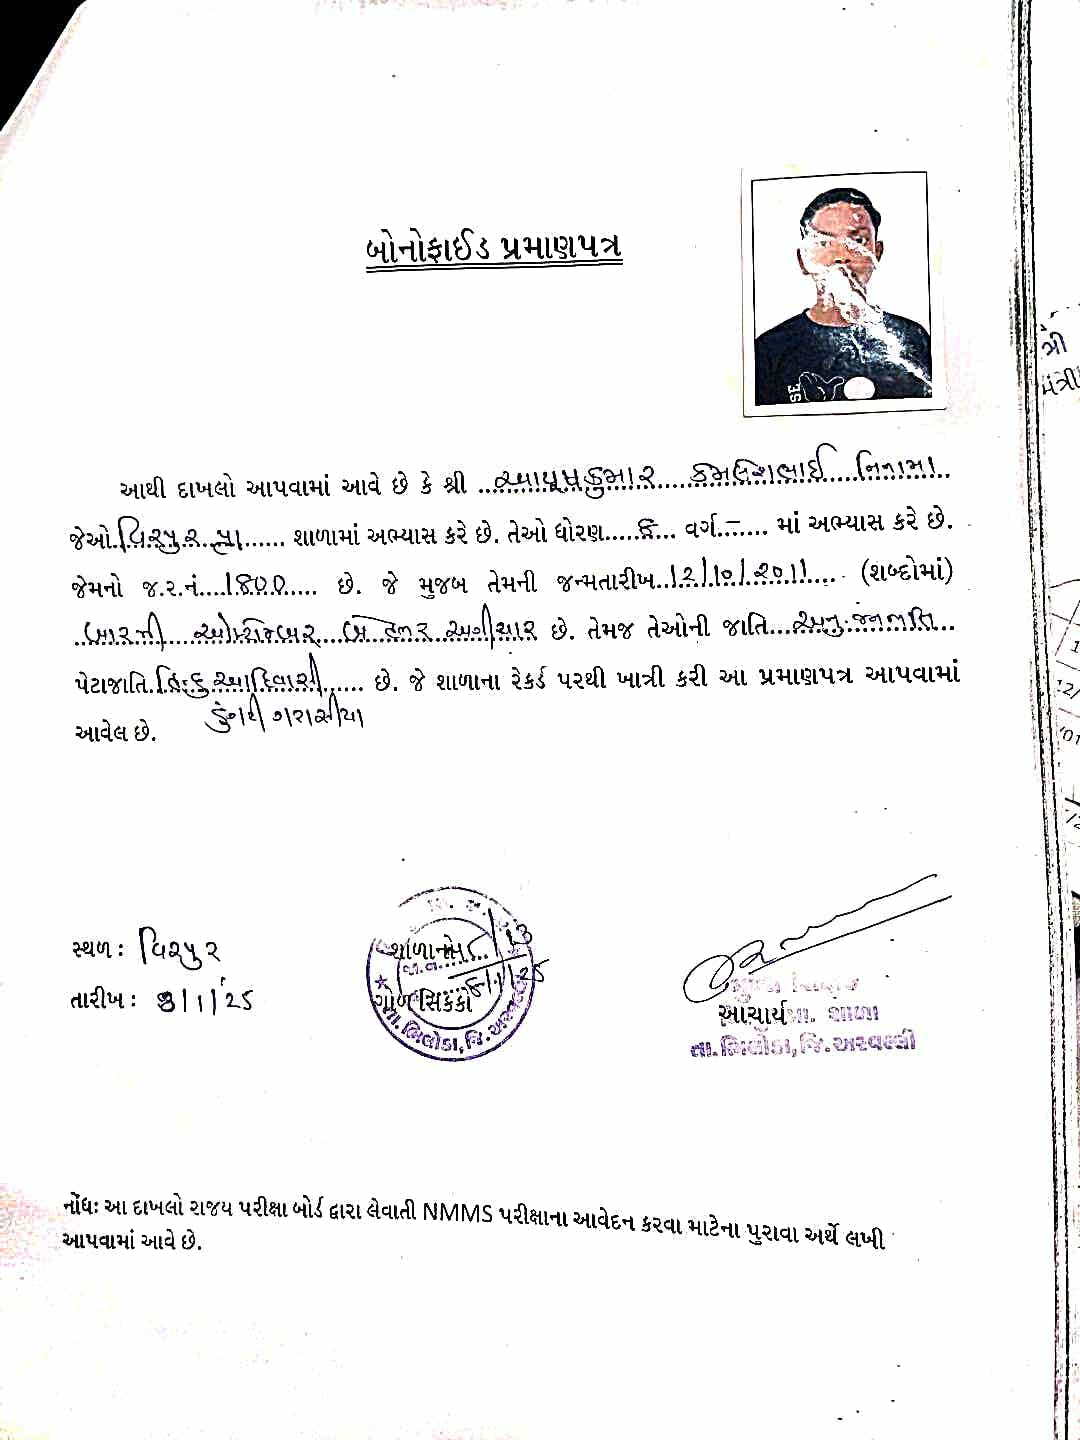 બોનોફાઈડ પ્રમાણપત્ર
આથી દાખલો આપવામાં આવે છે કે શ્રી ..આયુષકુમાર.....કમલેશભાઈ....નિનામા..
જેઓ.વિરપુર.પ્રા...... શાળામાં અભ્યાસ કરે છે. તેઓ ધોરણ.....૮.. વર્ગ.–...... માં અભ્યાસ કરે છે.
જેમનો જ.ર.નં....1800..... છે. જે મુજબ તેમની જન્મતારીખ..12/10/2011..... (શબ્દોમાં)
..બારમી....ઓક્ટોમ્બર...બે હજાર અગીયાર છે. તેમજ તેઓની જાતિ...અનુ.જનજાતિ...
પેટાજાતિ.હિન્દુ આદિવાસી...... છે. જે શાળાના રેકર્ડ પરથી ખાત્રી કરી આ પ્રમાણપત્ર આપવામાં
ડુંગરી ગરાસીયા
આવેલ છે.
સ્થળ : વિરપુર
શાળાનો
તારીખ : 8/1/'25
ગોળ સિક્કો
8/1/25
તા. ભિલોડા, જિ. અરવલ્લી
આચાર્ય
પ્રા. શાળા
તા. ભિલોડા, જિ. અરવલ્લી
નોંધઃ આ દાખલો રાજય પરીક્ષા બોર્ડ દ્વારા લેવાતી NMMS પરીક્ષાના આવેદન કરવા માટેના પુરાવા અર્થે લખી
આપવામાં આવે છે.
SE